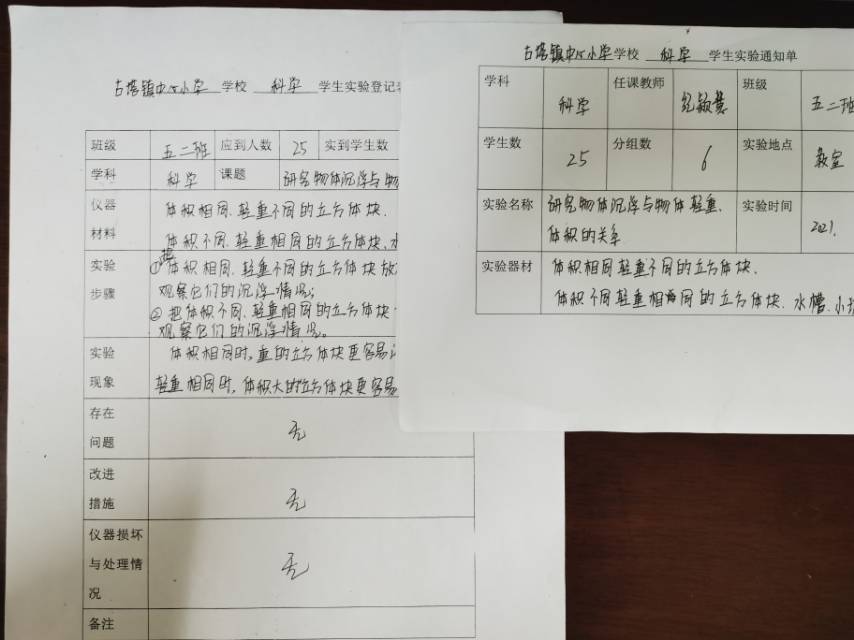 古塔镇中心小学 学校 科学 学生实验登记表
班级 五二班 应到人数 25 实到学生数
学科 科学 课题 研究物体沉浮与物
仪器材料 体积相同、轻重不同的立方体块.
体积不同、轻重相同的立方体块、水
实验步骤 ①把体积相同、轻重不同的立方体块放
观察它们的沉浮情况;
②把体积不同、轻重相同的立方体块
观察它们的沉浮情况。
实验现象 体积相同时,重的立方体块更容易
轻重相同时,体积大的立方体块更容易
存在问题 无
改进措施 无
仪器损坏与处理情况 无
备注
古塔镇中心小学 学校 科学 学生实验通知单
学科 科学 任课教师 纪颖慧 班级 五二班
学生数 25 分组数 6 实验地点 教室
实验名称 研究物体沉浮与物体轻重、
体积的关系 实验时间 2021.
实验器材 体积相同轻重不同的立方体块.
体积不同轻重相同的立方体块、水槽、小